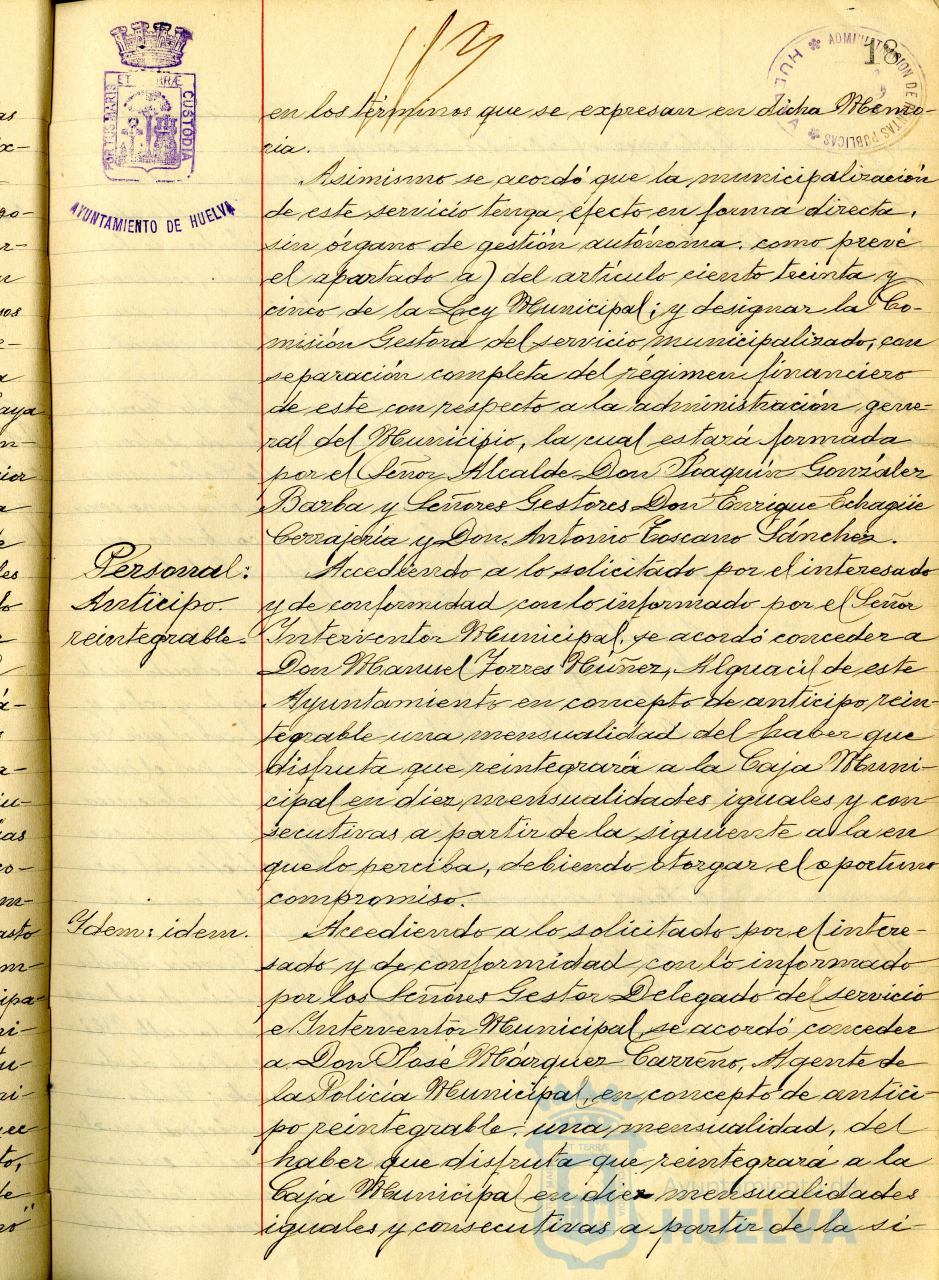 18
en los términos que se expresan en dicha Memo-
ria.
Asimismo se acordó que la municipalización
de este servicio tenga efecto en forma directa,
sin órgano de gestión autónoma, como prevé
el apartado a) del artículo ciento treinta y
cinco de la Ley Municipal; y designar la Co-
misión Gestora del servicio municipalizado, con
separación completa del régimen financiero
de este con respecto a la administración gene-
ral del Municipio, la cual estará formada
por el Señor Alcalde Don Joaquín González
Barba y Señores Gestores Don Enrique Echagüe
Cerrajería y Don Antonio Toscano Sánchez.
Personal:
Anticipo
reintegrable.
Accediendo a lo solicitado por el interesado
y de conformidad con lo informado por el Señor
Interventor Municipal, se acordó conceder a
Don Manuel Torres Núñez, Alguacil de este
Ayuntamiento en concepto de anticipo rein-
tegrable una mensualidad del haber que
disfruta que reintegrará a la Caja Muni-
cipal en diez mensualidades iguales y con
secutivas a partir de la siguiente a la en
que lo perciba, debiendo otorgar el oportuno
compromiso.
Idem: idem.
Accediendo a lo solicitado por el intere-
sado y de conformidad con lo informado
por los Señores Gestor Delegado del servicio
e Interventor Municipal, se acordó conceder
a Don José Márquez Carreño, Agente de
la Policía Municipal, en concepto de antici-
po reintegrable, una mensualidad, del
haber que disfruta que reintegrará a la
Caja Municipal en diez mensualidades
iguales y consecutivas a partir de la si-
PORTUS MARIS ET TERRÆ CUSTODIA
AYUNTAMIENTO DE HUELVA
ADMINISTRACION DE RENTAS PUBLICAS
HUELVA
Ayuntamiento de
HUELVA